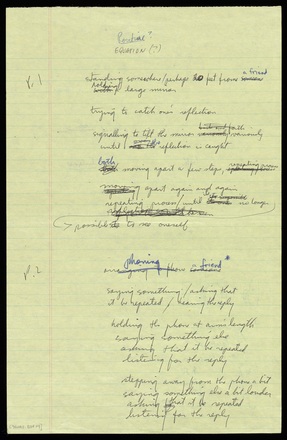 Positive?
EQUATION (?)
p. 1
a friend
standing somewhere/perhaps 20 feet from
holding a large mirror
trying to catch one's reflection
signalling to tilt the mirror variously
until the reflection is caught
both moving apart a few steps,
apart again and again
repeating process/until no longer
possible to see oneself
p. 2
phoning a friend
saying something / asking that
it be repeated / hearing the reply
holding the phone at arm's length
saying something else
asking that it be repeated
listening for the reply
stepping away from the phone a bit
saying something else a bit louder
asking that it be repeated
listening for the reply